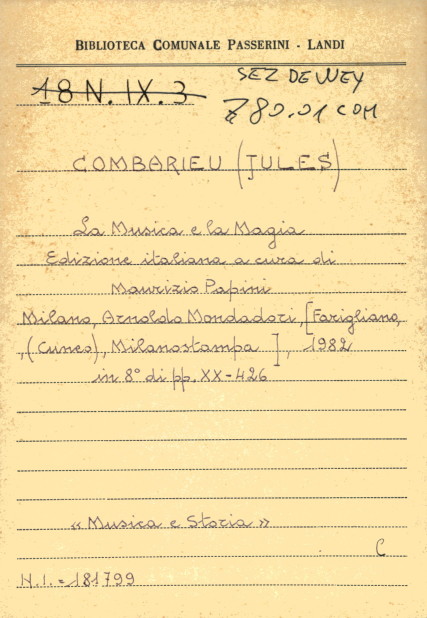 BIBLIOTECA COMUNALE PASSERINI - LANDI
18 N. IX. 3
SEZ DEWEY
780.01 COM
COMBARIEU (JULES)
La Musica e la Magia
Edizione italiana a cura di
Maurizio Papini
Milano, Arnoldo Mondadori, [Farigliano,
,(Cuneo), Milanostampa ], 1982
in 8° di pp. XX-426
« Musica e Storia »
C
N.I. = 181799